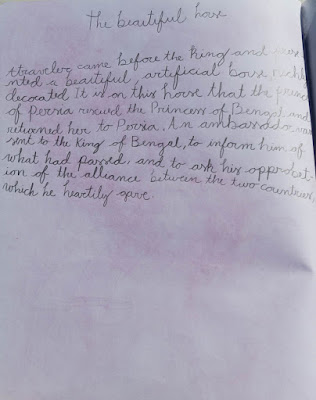 The beautiful horse
traveler came before the King and prese
nted a beautiful, artificial horse richly
decorated It is on this horse that the prince
of Persia rescued the Princess of Bengal and
returned her to Persia. An ambassador was
sent to the King of Bengal, to inform him of
what had passed, and to ask his approbat-
ion of the alliance between the two countries,
which he heartily gave.